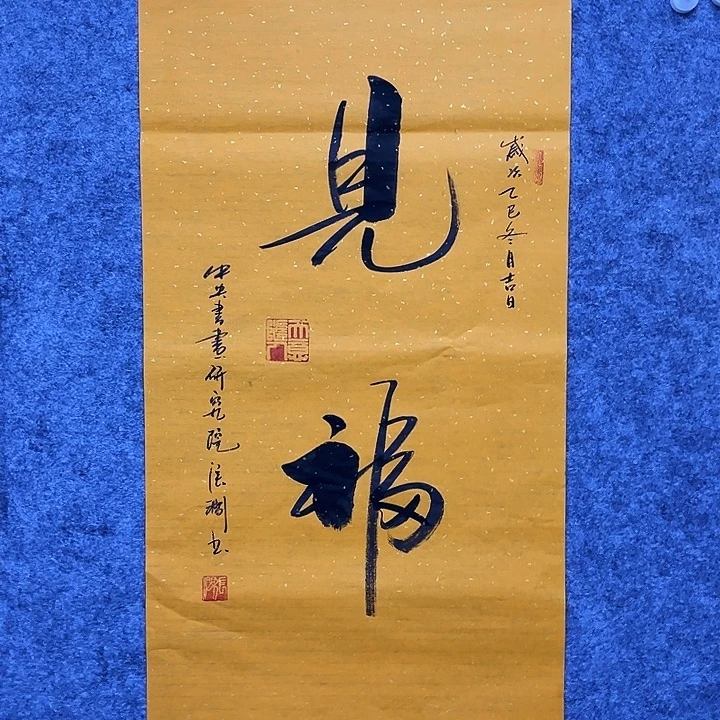 歲次乙巳冬月吉日
見福
中央書畫研究院張澍書